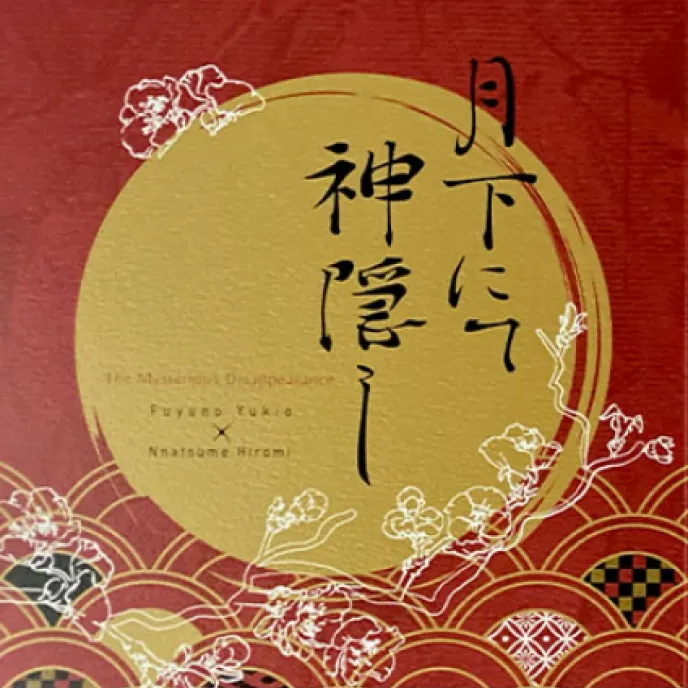 月下にて
神隠し
The Mysterious Disappearance
Fuyuno Yukio
×
Nnatsume Hiromi